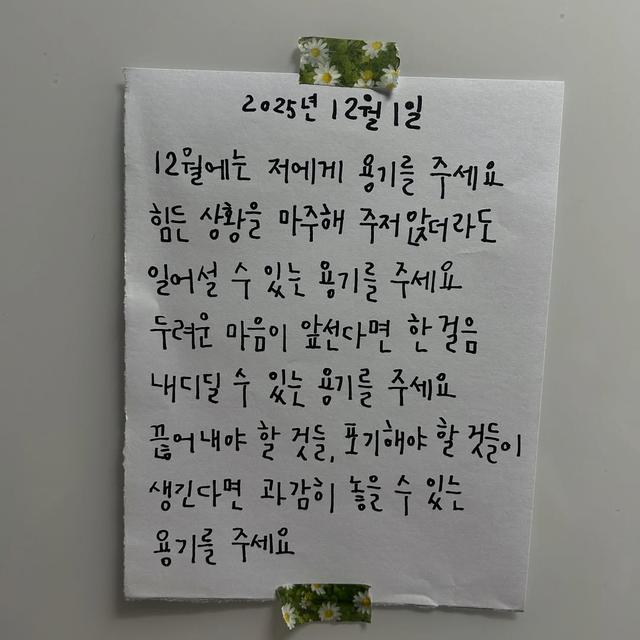 2025년 12월 1일
12월에는 저에게 용기를 주세요
힘든 상황을 마주해 주저앉더라도
일어설 수 있는 용기를 주세요
두려운 마음이 앞선다면 한 걸음
내디딜 수 있는 용기를 주세요
끊어내야 할 것들, 포기해야 할 것들이
생긴다면 과감히 놓을 수 있는
용기를 주세요